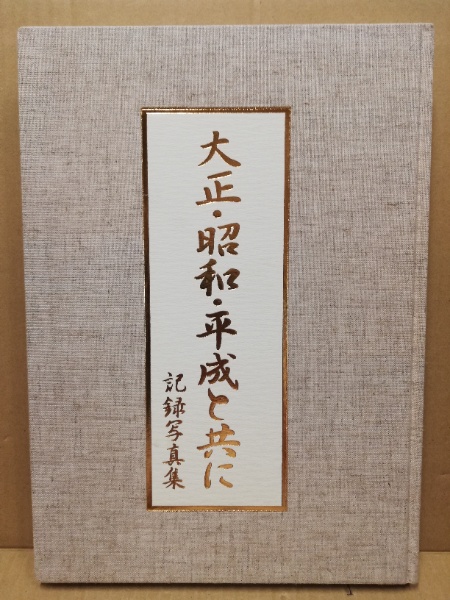 大正・昭和・平成と共に
記録写真集